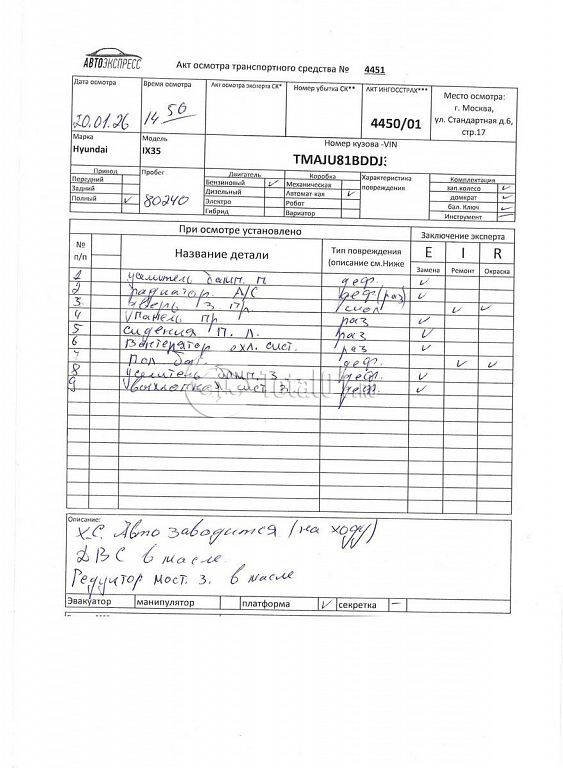 АВТОЭКСПРЕСС
Акт осмотра транспортного средства № 4451
Дата осмотра
20.01.26
Время осмотра
14 50
Акт осмотра эксперта СК*
Номер убытка СК**
АКТ ИНГОССТРАХ***
4450/01
Место осмотра:
г. Москва,
ул. Стандартная д.6,
стр.17
Марка
Hyundai
Модель
IX35
Номер кузова -VIN
TMAJU81BDDJ
Привод
Передний
Задний
Полный ✓
Пробег
80240
Двигатель
Бензиновый ✓
Дизельный
Электро
Гибрид
Коробка
Механическая
Автомат-кая ✓
Робот
Вариатор
Характеристика
повреждения
Комплектация
зап.колесо ✓
домкрат ✓
бал. Ключ ✓
Инструмент –
При осмотре установлено
Заключение эксперта
№
п/п
Название детали
Тип повреждения
(описание см.Ниже
E I R
Замена Ремонт Окраска
1 усилитель бамп. п деф. ✓
2 радиатор. А/С деф(раз) ✓
3 дверь з. пр. ✓ ✓
4 панель пр раз ✓
5 сидения П. Л. раз ✓
6 охл. сист. раз ✓
7 пол баг. деф. ✓ ✓
8 усилитель бамп. з деф. ✓
9 сист з. деф. ✓
Описание:
Х.С. Авто заводится (на ходу)
ДВС в масле
Редуктор мост. з. в масле
Эвакуатор манипулятор платформа ✓ секретка –